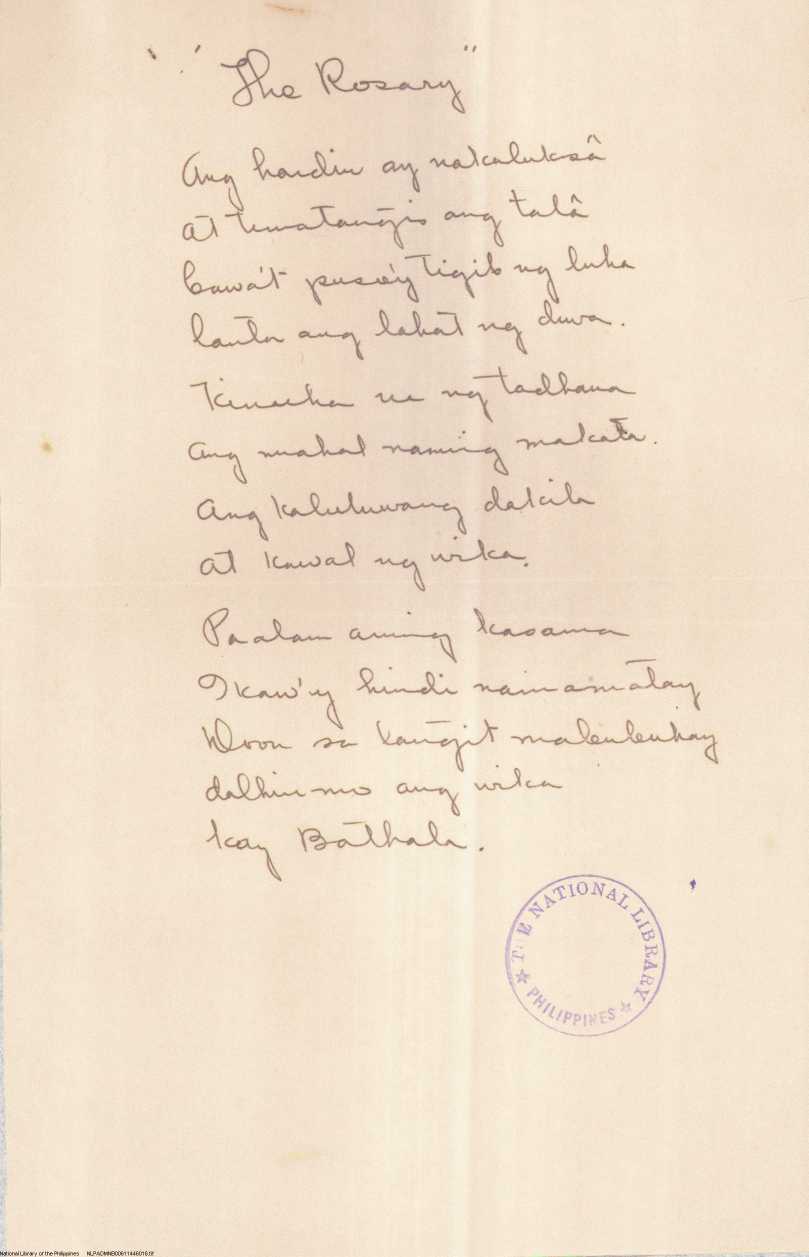 "The Rosary"
Ang hardin ay nakaluksâ
at tumatangis ang talà
bawa't puso'y tigib ng luha
lanta ang lahat ng diwa.
Kinuha na ng tadhana
ang mahal naming makata.
Ang kaluluwang dakila
at kawal ng wika.
Paalam aming kasama
Ikaw'y hindi namamatay
Doon sa langit
dalhin mo ang wika
kay Bathala.
THE NATIONAL LIBRARY
PHILIPPINES
National Library of the Philippines NLPADMNB00611446010.tif